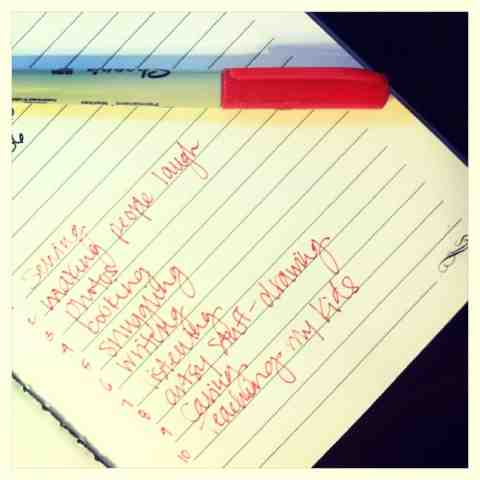 Sharpie
Permanent Marker
2 making people laugh
3 photos
4 cooking
5 snuggling
6 writing
7 listening
8 artsy stuff-drawing
9 caring
10 teaching my kids